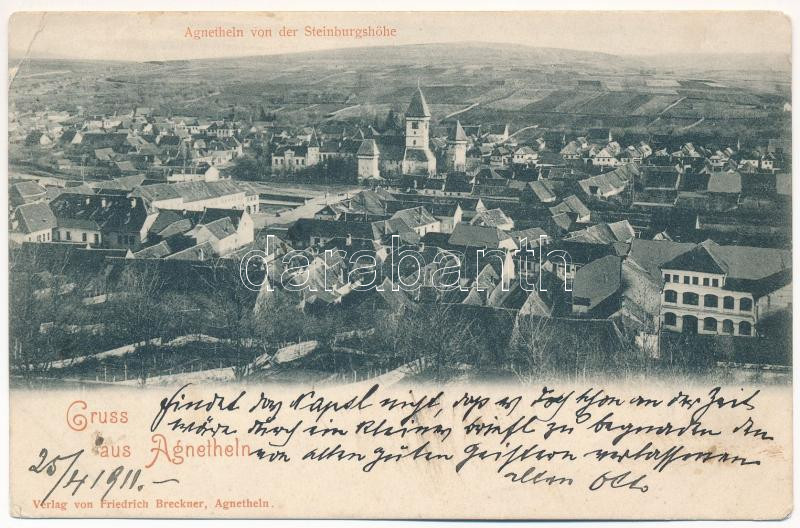 Agnetheln von der Steinburgshöhe
darabanth.com
Gruss
aus Agnetheln
findet das Kapsl nicht, daß es doch schon an der Zeit
wäre durch ein kleines briefl zu begnaden den
von allen guten Geistern verlassenen
alten Otto
25/4 1911.-
Verlag von Friedrich Breckner, Agnetheln.